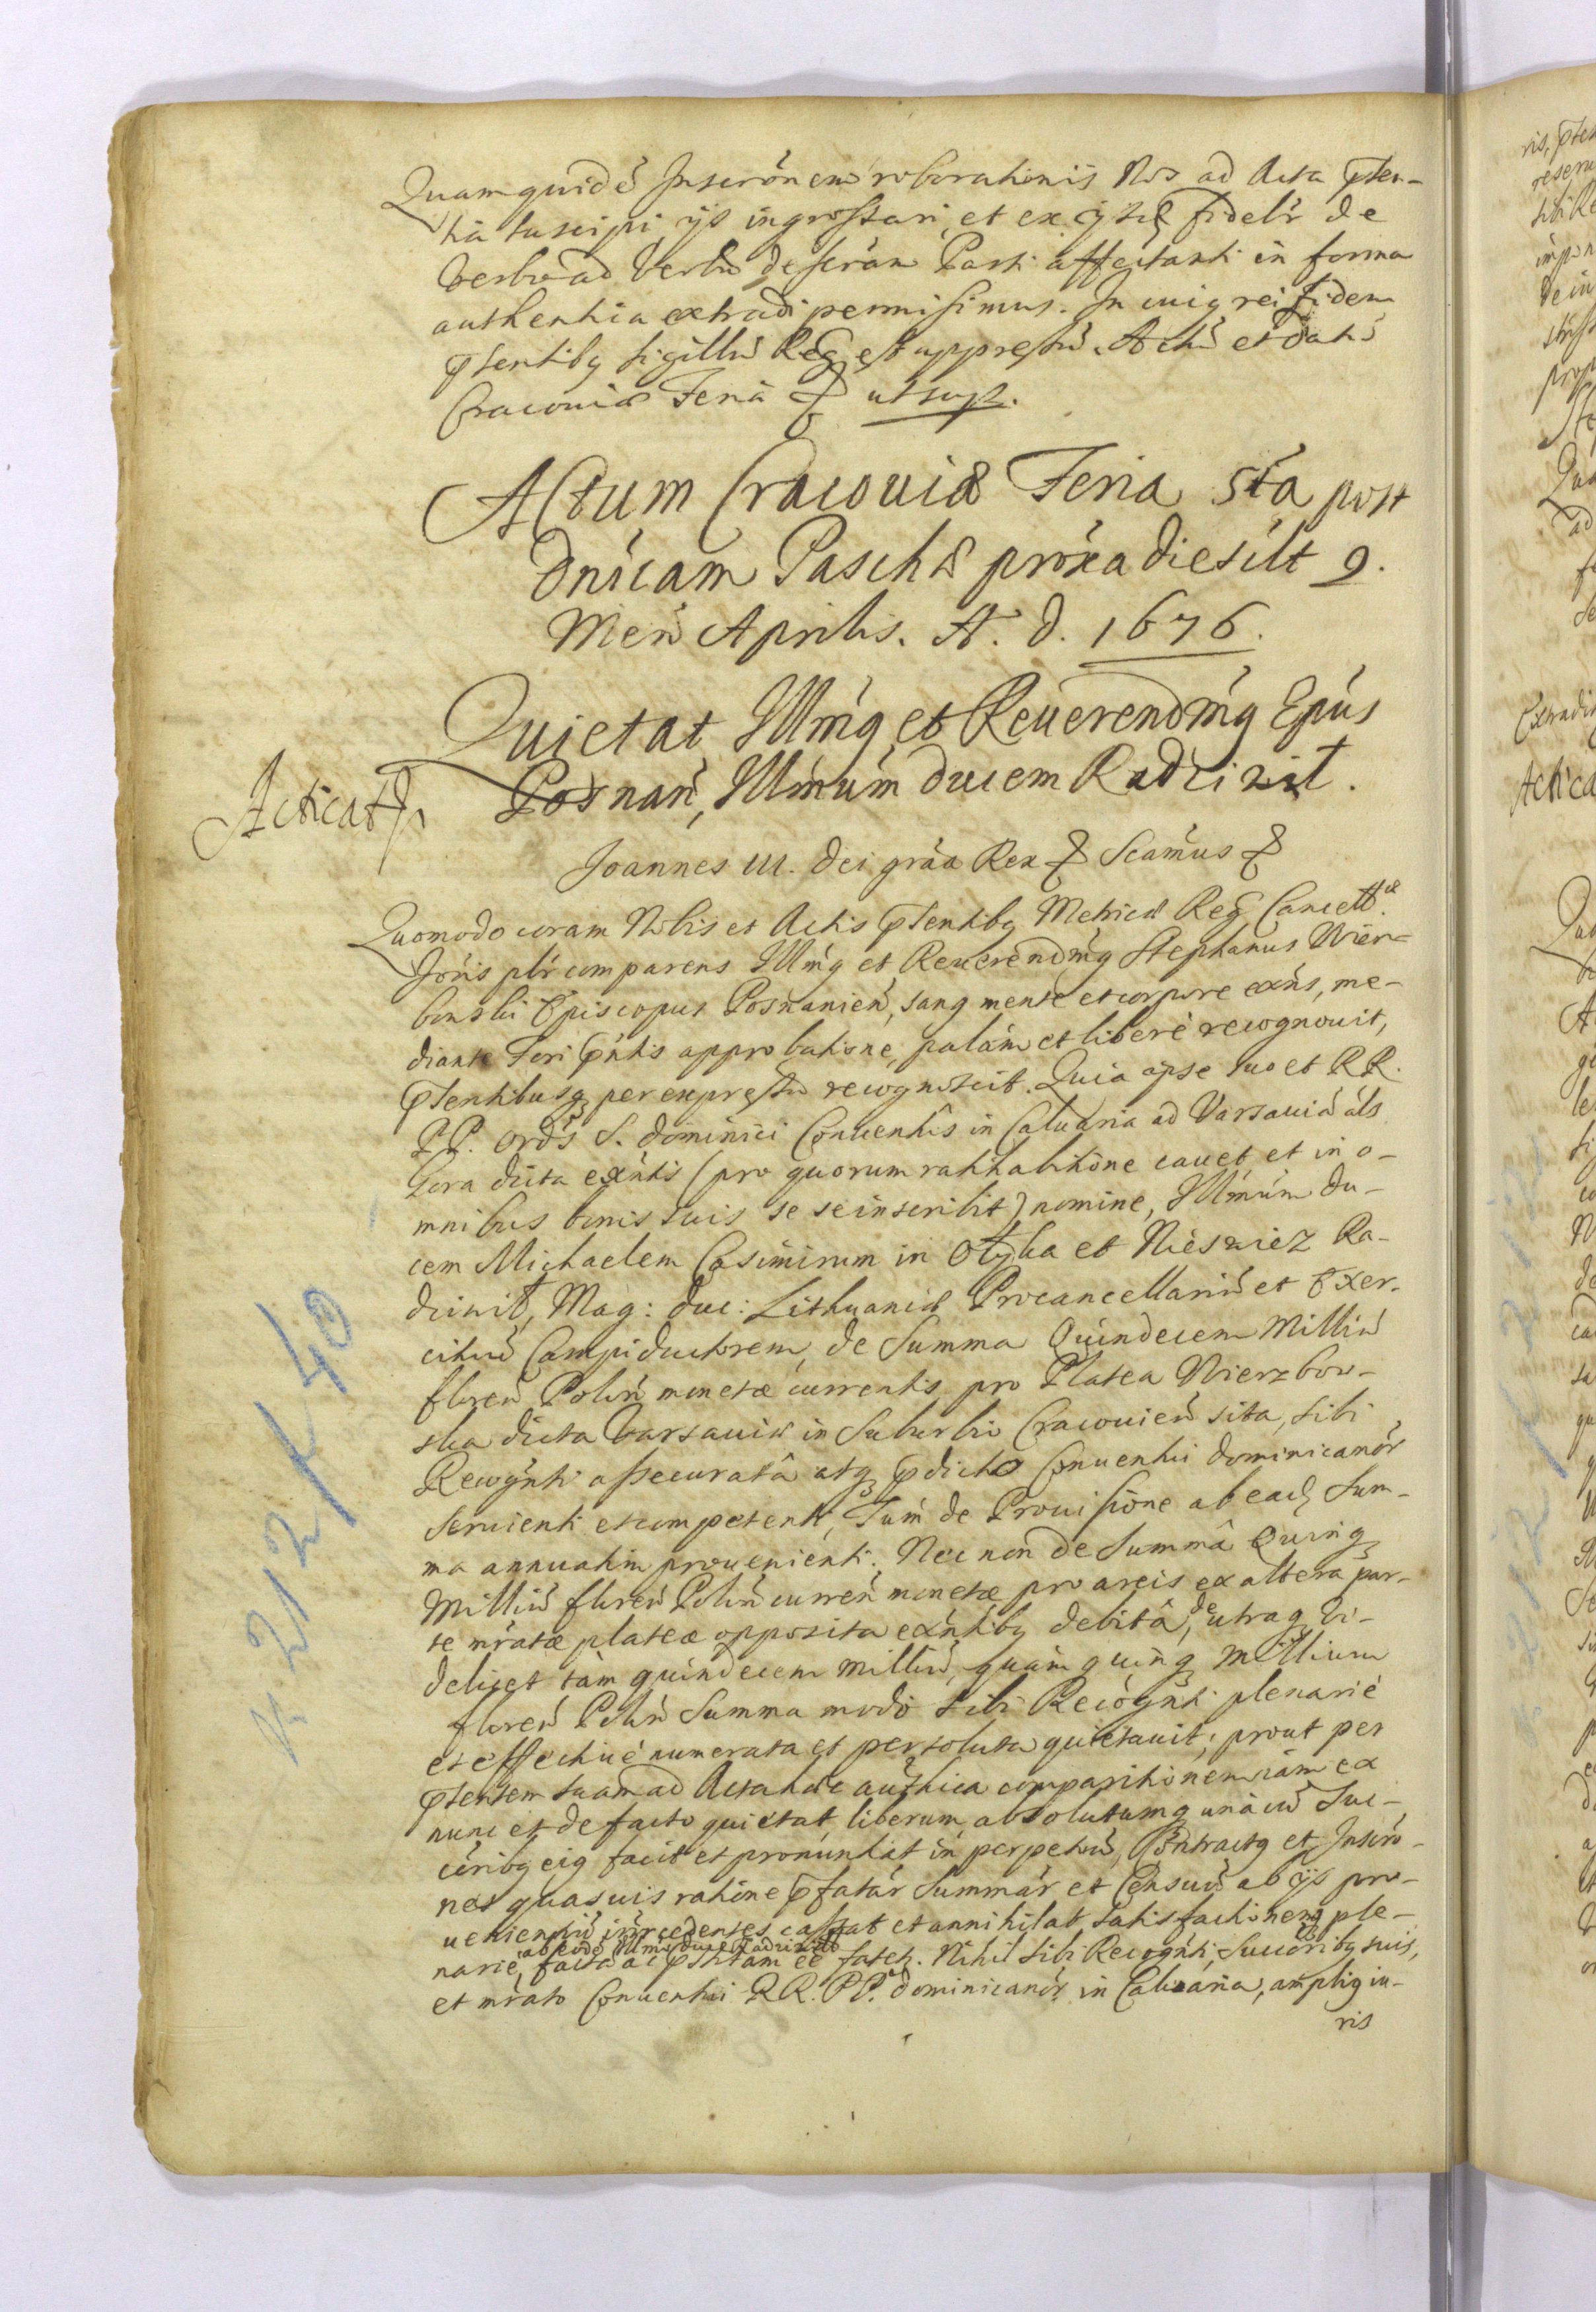 Quamquidē Inscrōnem roborationis Nos ad Acta p̄sen-
tia suscipi ijs ingrossari, et ex ijsdē fidelr de
Verbo ad Verbū descrām Parti affectanti in forma
authentica extradi permisimus. In cuiq rei fidem
p̄sentibq sigillū Reg est appressū. Actū et datū
Cracouiæ Feria & ut sup.
Actum Cracouiæ Feria 5ta post
Dnicam Paschæ proxa die sclt 9.
Men Aprilis. A. D. 1676.
Quietat Illmq et Reuerendmq Epus
Posnan, Illmum Ducem Radziwił.
Acticat
Joannes III. Dei graa Rex & Scamus &
Quomodo coram Nobis et Actis p̄sentibq Metricæ Reg Cancell.æ
Joris plr comparens Illmq et Reuerendmq Stephanus Wier-
bowski Episcopus Posnanien, sanq mente et corpore exns, me-
diante Fori sui approbatione, palam et libere recognouit,
p̄sentibusq per expressū recognoscit. Quia ipse suo et RR.
PP. Ords S. Dominici Conuentus in Caluaria ad Varsauiā als
Gora dicta exntis (pro quorum rathabitione cauet, et in o-
mnibus bonis suis se se inscribit) nomine, Illmum Du-
cem Michaelem Casimirum in Ołyka et Nieswiez Ra-
dziwił, Mag: Duc: Lithuaniæ Procancellariū et Exer-
cituū Campiductorem, de Summa Quindecem Milliū
floren Polon monetæ currentis pro Platea Wierzbow-
ska dicta Varsauiæ in Suburbio Cracouien sita, sibi
Recognti assecuratâ atq p̄dicto Conuentui Dominicanor
seruienti et competenti, Tum de Prouisione ab eadē Sum-
ma annuatim prouenienti. Nec non de Summâ Quinq
Milliū floren Polon curren monetæ, pro areis ex altera par-
te mratæ plateæ opposita exntibq debitâ, de utraq vi-
delicet tam quindecem milliū, quam quinq Millium
floren Polon Summa modo sibi Recognti plenarié
et effectiué numerata et persoluta quietauit; prout per
p̄sentem suam ad Acta hæc authica comparitionem iam ex
nunc et de facto quietat, liberum, absolutumq unà cū Suc-
coribq eiq facit et pronuntiat in perpetuū, Contractq et Inscro-
nes quasuis ratione p̄fatar Summar et Censuū ab ijs pro-
uenientiū intercedentes cassat et annihilat satisfactionemq ple-
ab eodē Illmo Duce Radziwiłł
narié, factā ac p̄stitam eē fatet. Nihil sibi Recognti, Succoribq suis,
et mrato Conuentui RR. PP. Dominicanor in Caluaria, ampliq iu-
ris
K 212 K 40